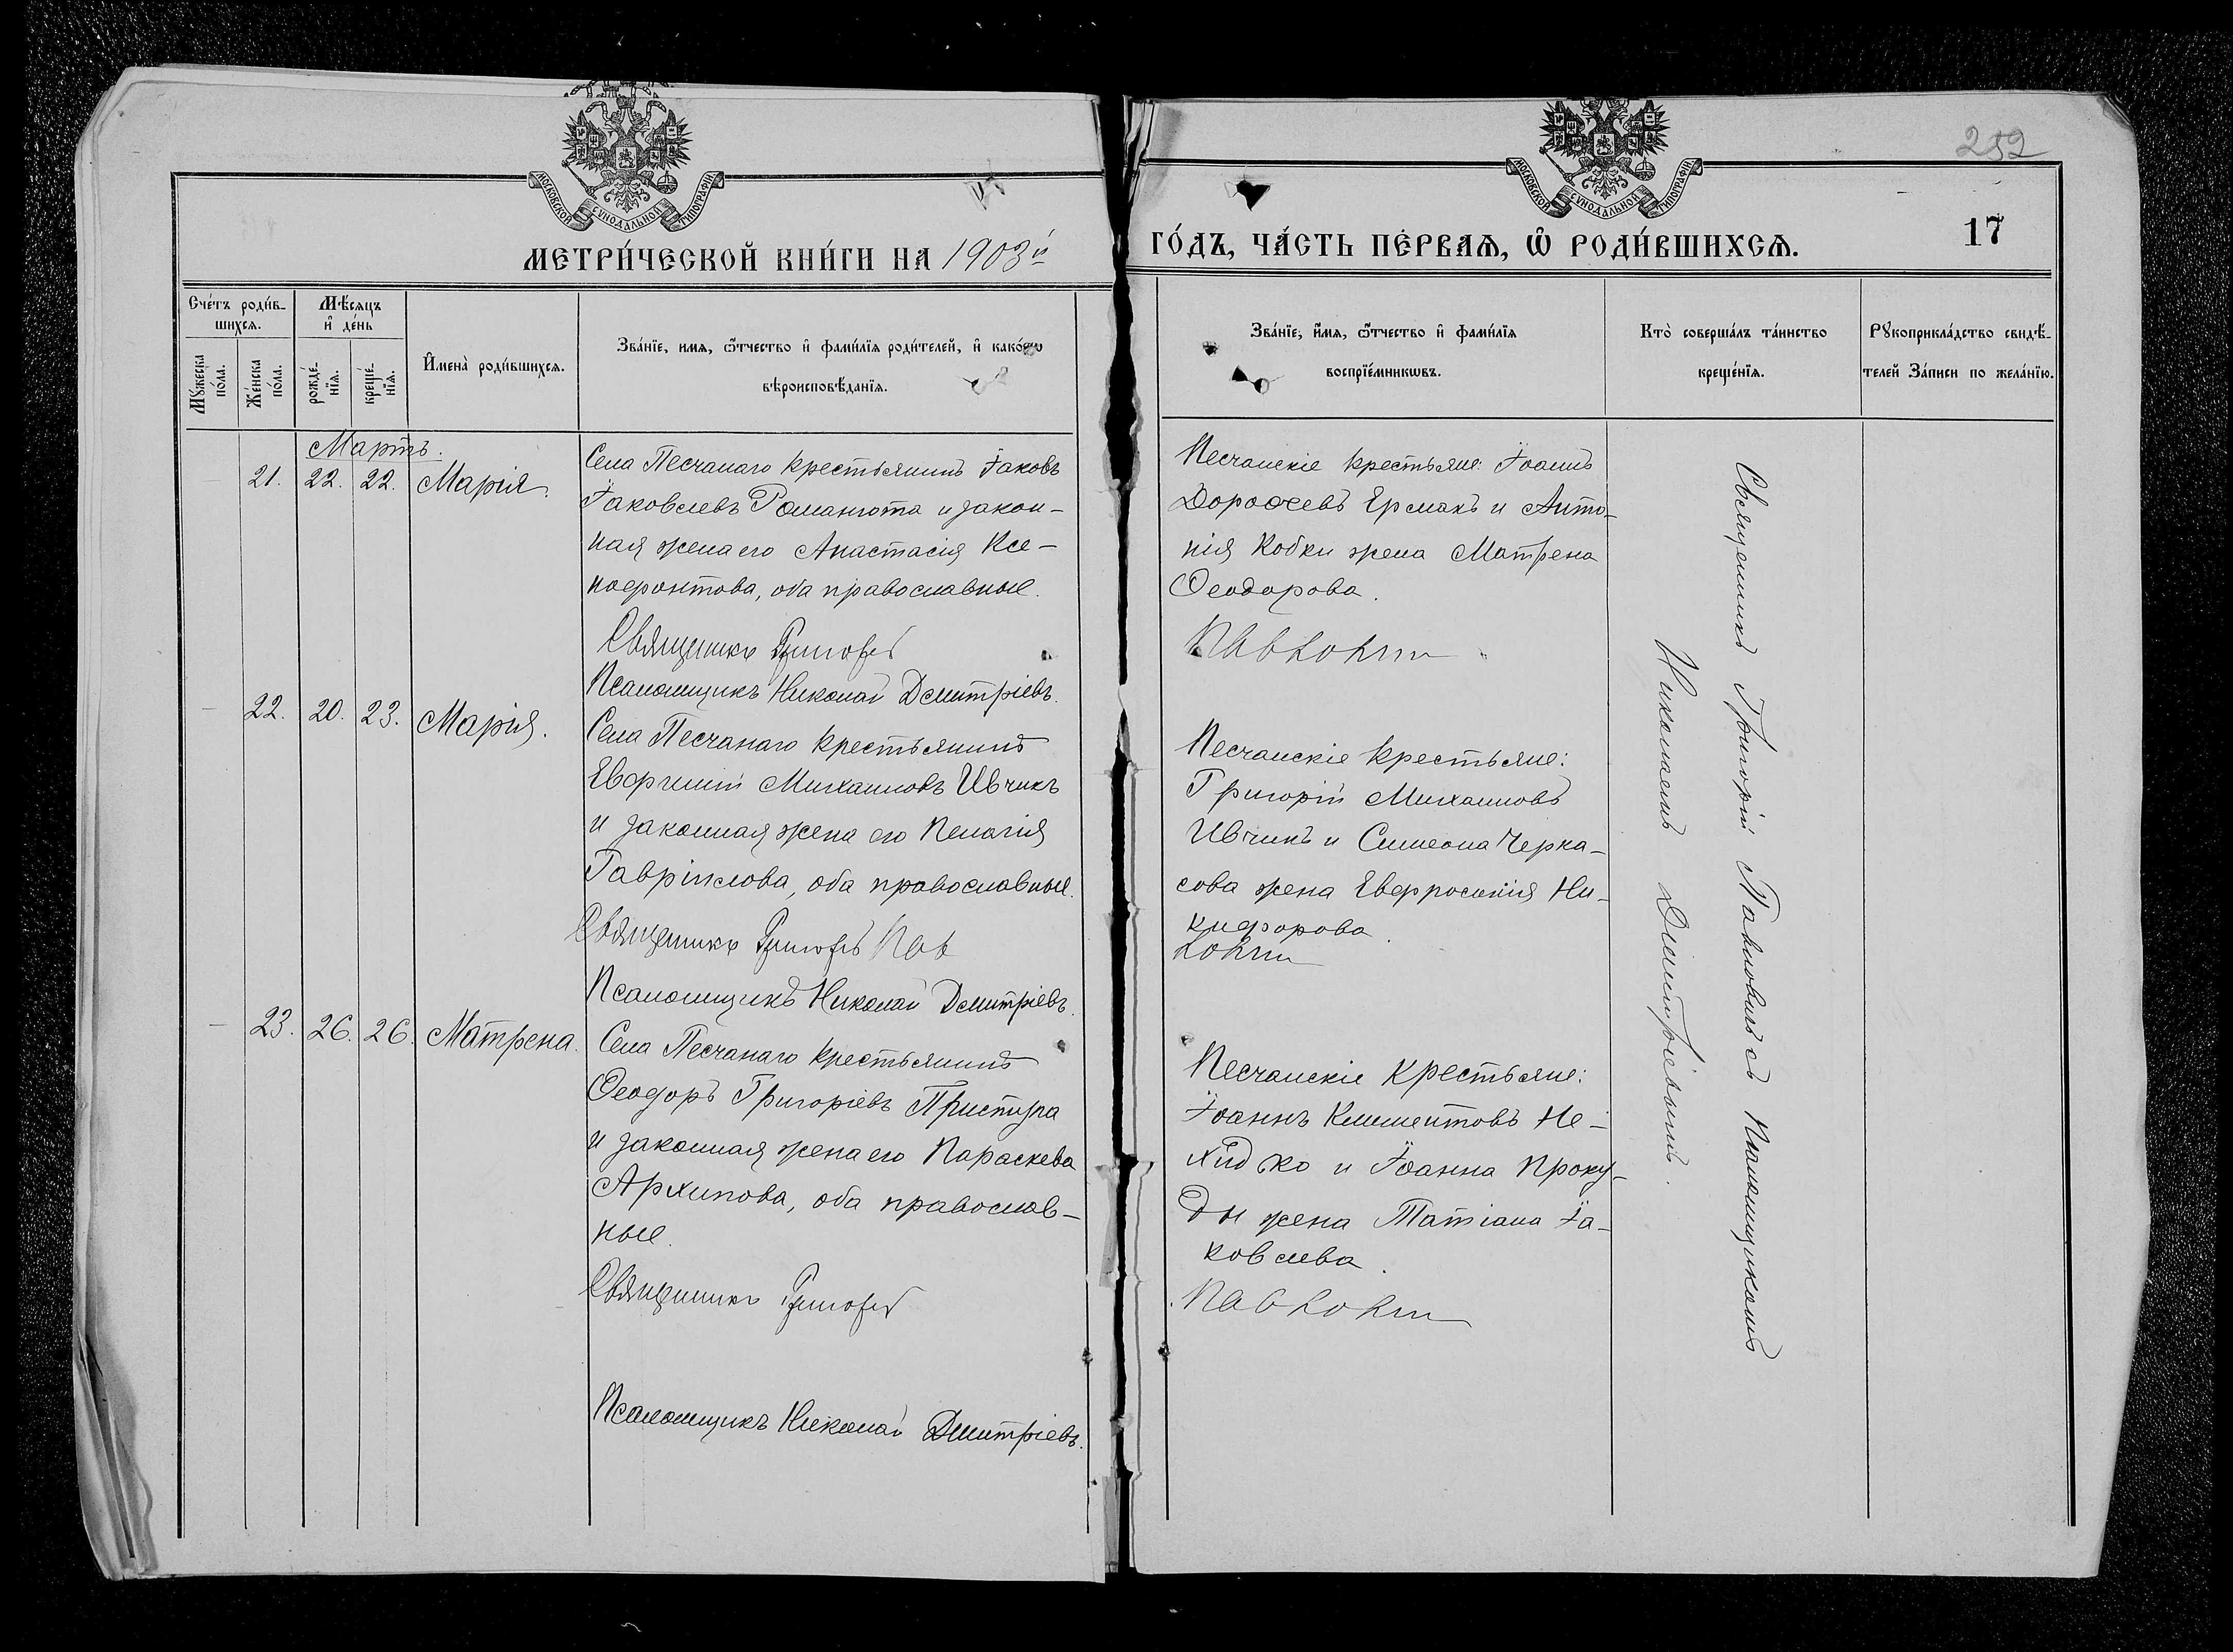 252
МОСКОВСКОЙ СѴНОДАЛЬНОЙ ТИПОГРАФІИ
МОСКОВСКОЙ СѴНОДАЛЬНОЙ ТИПОГРАФІИ
МЕТРИ́ЧЕСКОЙ КНИ́ГИ НА 1903й
ГО́ДЪ, ЧА́СТЬ ПЕ́РВАѦ, Ѡ҆ РОДИ́ВШИХСѦ.
17
Сче́тъ роди́в-
шихсѧ.
Мѣ́сѧцъ
и҆ де́нь
Мꙋ́жеска
по́ла.
Же́нска
по́ла.
рожде́-
нїѧ.
креще́-
нїѧ.
И҆мена̀ роди́вшихсѧ.
Зва́нїе, имѧ, ѻ҆́тчество и҆ фами́лїѧ роди́телей, и҆ како́гѡ
вѣроисповѣ́данїѧ.
Зва́нїе, и҆́мѧ, ѻ҆́тчество и҆ фами́лїѧ
воспрїе́мникѡвъ.
Кто̀ соверша́лъ та́инство
креще́нїѧ.
Рꙋкоприкла́дство свидѣ́-
телей За́писи по жела́нїю.
Мартъ.
21. 22. 22. Марія.
Села Песчанаго крестьянинъ Іаковъ
Іаковлевъ Романюта и закон-
ная жена его Анастасія Ксе-
нофонтова, оба православные.
Священникъ Григорій
Псаломщикъ Николай Дмитріевъ.
Песчанскіе крестьяне: Іоаннъ
Дороѳеевъ Ермакъ и Анто-
нія Кобки жена Матрена
Ѳеодорова.
Павловъ
22. 20. 23. Марія.
Села Песчанаго крестьянинъ
Евѳимій Михаиловъ Ивчикъ
и законная жена его Пелагія
Гавріилова, оба православные.
Священникъ Григорій Пав
Псаломщикъ Николай Дмитріевъ.
Песчанскіе крестьяне:
Григорій Михаиловъ
Ивчикъ и Симеона Черка-
сова жена Евфросинія Ни-
кифорова.
23. 26. 26. Матрена.
Села Песчанаго крестьянинъ
Ѳеодоръ Григоріевъ Приступа
и законная жена его Параскева
Архипова, оба православ-
ные.
Священникъ Григорій
Псаломщикъ Николай Дмитріевъ.
Песчанскіе крестьяне:
Іоаннъ Климентовъ Не-
хидко и Іоанна Проку-
ды жена Татіана Іа-
ковлева.
Священникъ Григорій Павловичъ съ псаломщикомъ
Николаемъ Дмитріевымъ.